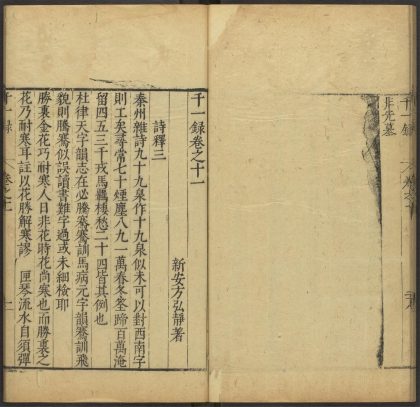 千一録
非先墓
千一録卷之十一
新安方弘靜著
詩釋三
秦州雜詩九十九泉作十九泉似未可以對西南子
則工矣尋常七十煙塵八九一萬春冬百萬淹
留四五三千戎馬羈棲愁二十四皆其例也
杜律天字韻志在必騰騫騫訓馬病元字韻騫訓飛
貌則騰騫似誤讀書難字過或未細檢耶
勝裏金花巧耐寒人日非花時花尚寒也而勝裏之
花乃耐寒斗註以花勝解寒謬 匣琴流水自須彈
千一録